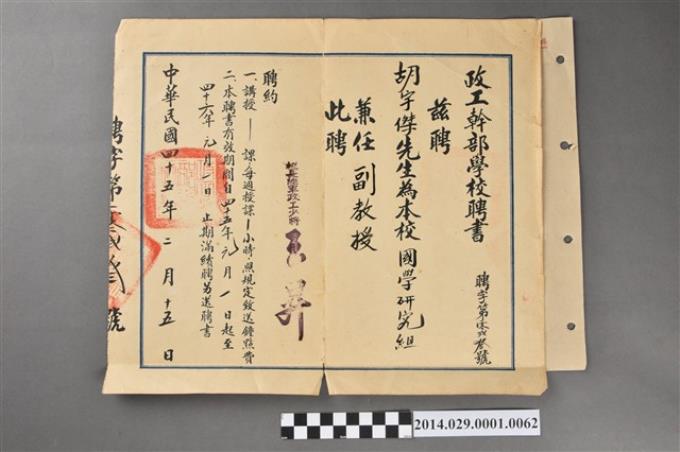 政工幹部學校聘書
聘字第零六叁號
茲聘
胡宇傑先生為本校國學研究組
兼任副教授
此聘
校長陸軍政工少將
聘約
一、講授 — 課，每週授課 — 小時，照規定致送鐘點費
二、本聘書有效期間自四十五年元月一日起至
四十六年元月一日止期滿續聘另送聘書
中華民國四十五年二月十五日
聘字第
號
2014.029.0001.0062